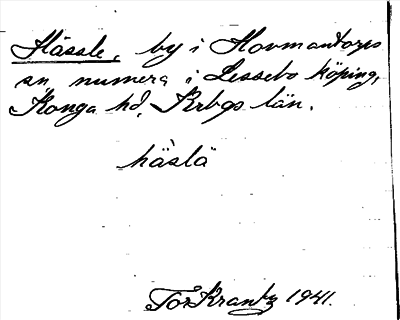 Hässle, by i Hovmantorps
sn, numera i Lessebo köping,
Konga hd, Krbgs län.
hàslä
Tor Krantz 1941.